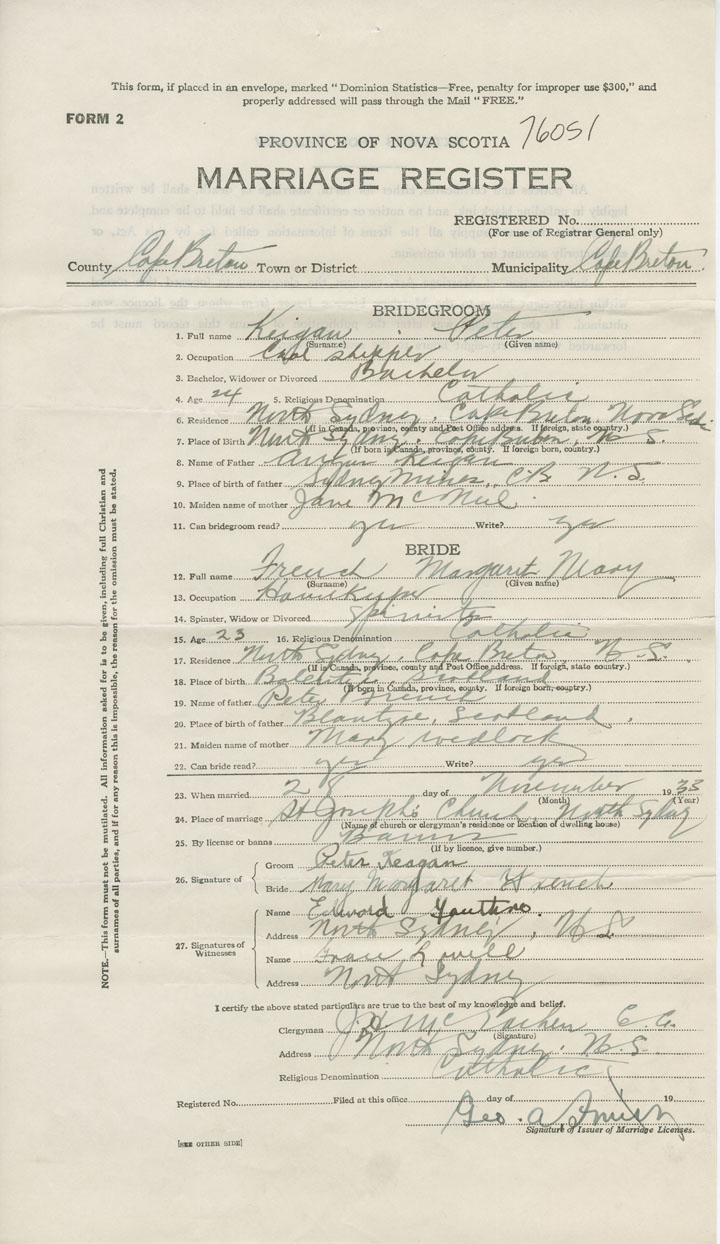 This form, if placed in an envelope, marked "Dominion Statistics—Free, penalty for improper use $300," and
properly addressed will pass through the Mail "FREE."
FORM 2
76051
PROVINCE OF NOVA SCOTIA
MARRIAGE REGISTER
REGISTERED No.
(For use of Registrar General only)
County Cape Breton Town or District Municipality Cape Breton
BRIDEGROOM
1. Full name Keigan Peter
(Surname) (Given name)
2. Occupation Coal shipper
3. Bachelor, Widower or Divorced Bachelor
4. Age 24 5. Religious Denomination Catholic
6. Residence North Sydney, Cape Breton, Nova Scotia
(If in Canada, province, county and Post Office address. If foreign, state country.)
7. Place of Birth North Sydney, Cape Breton, N. S.
(If born in Canada, province, county. If foreign born, country.)
8. Name of Father Angus Keigan
9. Place of birth of father Sydney Mines, C.B. N.S.
10. Maiden name of mother Jane McNeil
11. Can bridegroom read? yes Write? yes
BRIDE
12. Full name French Margaret Mary
(Surname) (Given name)
13. Occupation Housekeeper
14. Spinster, Widow or Divorced Spinster
15. Age 23 16. Religious Denomination Catholic
17. Residence North Sydney, Cape Breton, N. S.
(If in Canada, province, county and Post Office address. If foreign, state country.)
18. Place of birth Scotland
(If born in Canada, province, county. If foreign born, country.)
19. Name of father Peter French
20. Place of birth of father Blantyre, Scotland,
21. Maiden name of mother Mary Wedlock
22. Can bride read? yes Write? yes
23. When married 28 day of November 1933
(Month) (Year)
24. Place of marriage St Joseph's Church, North Sydney
(Name of church or clergyman's residence or location of dwelling house)
25. By license or banns Banns
(If by licence, give number.)
26. Signature of
Groom Peter Keagan
Bride Mary Margaret French
27. Signatures of Witnesses
Name Edward
Address North Sydney, N S
Name
Address North Sydney
I certify the above stated particulars are true to the best of my knowledge and belief.
Clergyman C. C.
(Signature)
Address North Sydney, N. S.
Religious Denomination Catholic
Registered No. Filed at this office day of 19
Geo. A.
Signature of Issuer of Marriage Licenses.
[SEE OTHER SIDE]
NOTE.—This form must not be mutilated. All information asked for is to be given, including full Christian and
surnames of all parties, and if for any reason this is impossible, the reason for the omission must be stated.